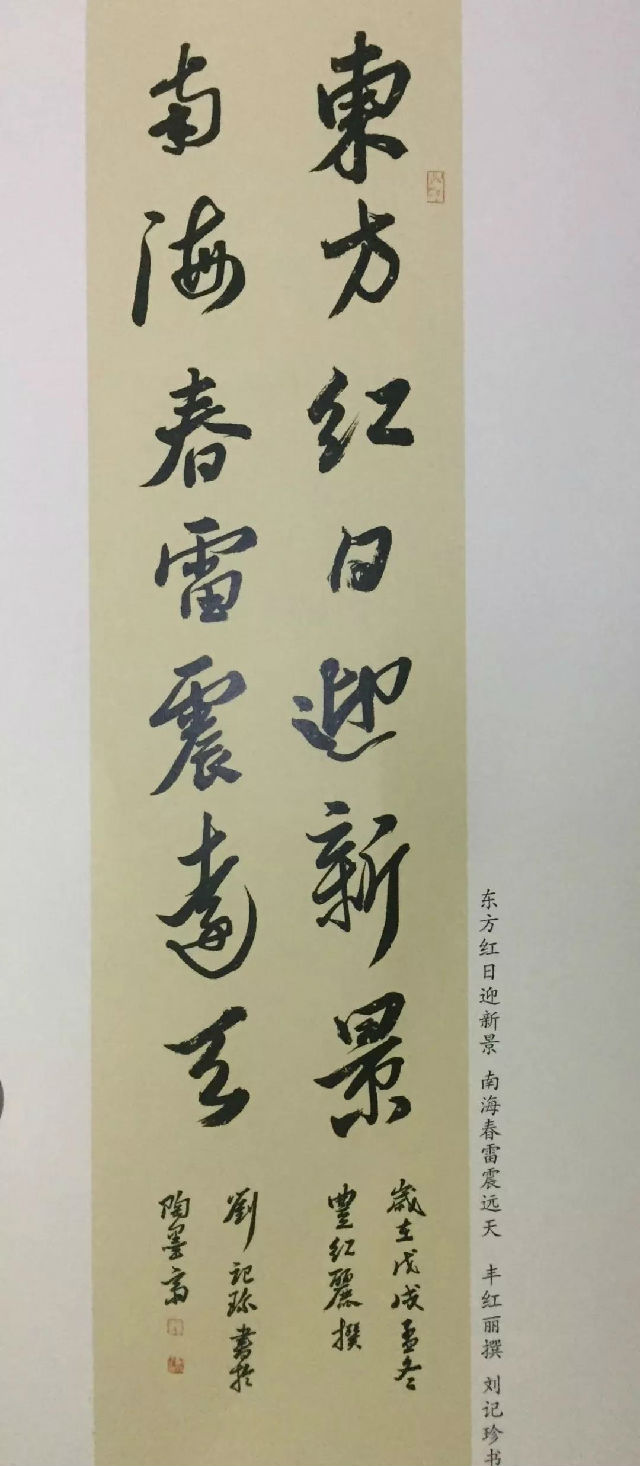 東方红日迎新景
南海春雷震遠天
歲在戊戌孟冬
豐红麗撰
劉記珍書於
陶墨齋
东方红日迎新景 南海春雷震远天 丰红丽撰 刘记珍书